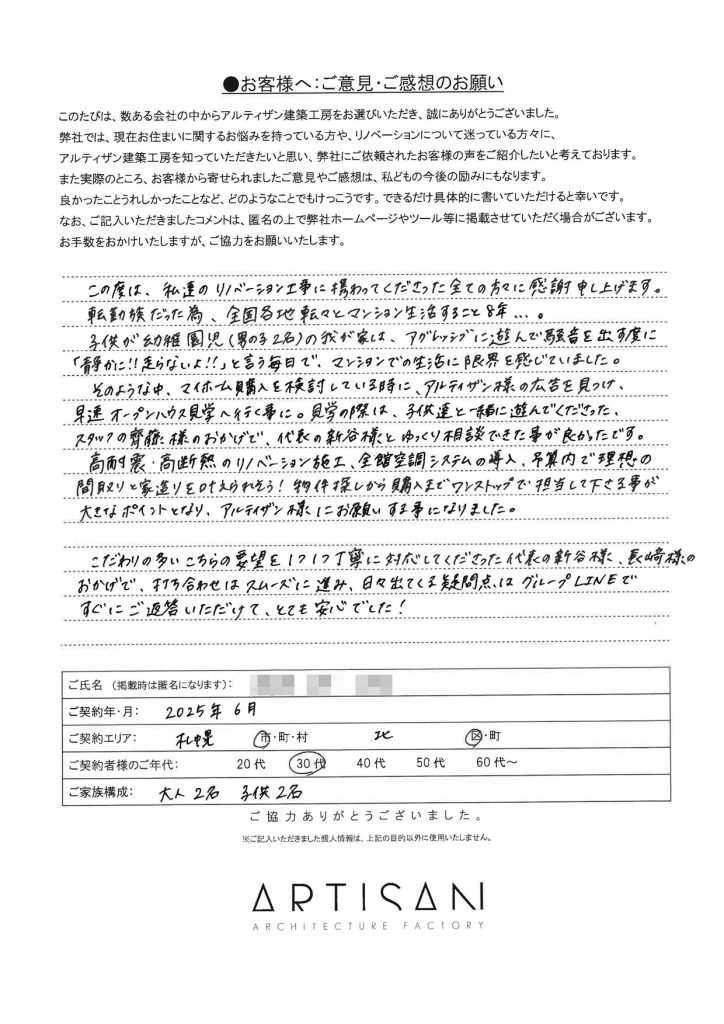 ●お客様へ：ご意見・ご感想のお願い
このたびは、数ある会社の中からアルティザン建築工房をお選びいただき、誠にありがとうございました。
弊社では、現在お住まいに関するお悩みを持っている方や、リノベーションについて迷っている方々に、
アルティザン建築工房を知っていただきたいと思い、弊社にご依頼されたお客様の声をご紹介したいと考えております。
また実際のところ、お客様から寄せられましたご意見やご感想は、私どもの今後の励みにもなります。
良かったことうれしかったことなど、どのようなことでもけっこうです。できるだけ具体的に書いていただけると幸いです。
なお、ご記入いただきましたコメントは、匿名の上で弊社ホームページやツール等に掲載させていただく場合がございます。
お手数をおかけいたしますが、ご協力をお願いいたします。
この度は、私達のリノベーション工事に携わってくださった全ての方々に感謝申し上げます。
転勤族だった為、全国各地転々とマンション生活すること8年...。
子供が幼稚園児(男の子2名)の我が家は、アグレッシブに遊んで騒音を出す度に
「静かに!!走らないよ!!」と言う毎日で、マンションでの生活に限界を感じていました。
そのような中、マイホーム購入を検討している時に、アルティザン様の広告を見つけ、
早速オープンハウス見学へ行く事に。見学の際は、子供達と一緒に遊んでくださった、
スタッフの齊藤様のおかげで、代表の新谷様とゆっくり相談できた事が良かったです。
高耐震・高断熱のリノベーション施工、全館空調システムの導入、予算内で理想の
間取りと家造りを叶えられそう！物件探しから購入までワンストップで担当して下さる事が
大きなポイントとなり、アルティザン様にお願いする事になりました。
こだわりの多いこちらの要望を1つ1つ丁寧に対応してくださった代表の新谷様、長崎様の
おかげで、打ち合わせはスムーズに進み、日々出てくる疑問点はグループLINEで
すぐにご返答いただけて、とても安心でした！
ご氏名（掲載時は匿名になります）：
ご契約年・月： 2025年6月
ご契約エリア： 札幌 市・町・村 北 区・町
ご契約者様のご年代： 20代 30代 40代 50代 60代～
ご家族構成： 大人2名 子供2名
ご協力ありがとうございました。
※ご記入いただきました個人情報は、上記の目的以外に使用いたしません。
ARTISAN
ARCHITECTURE FACTORY